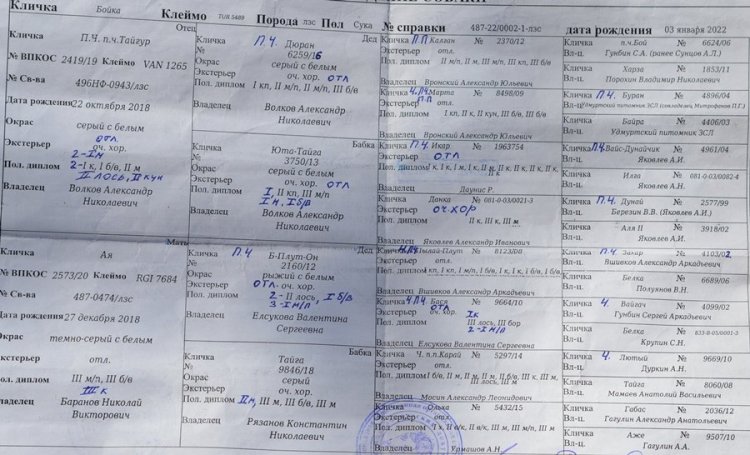 Кличка Бойка Клеймо TUR 5489 Порода лзс Пол Сука № справки 487-22/0002-1-лзс дата рождения 03 января 2022
Отец
Кличка П.Ч. п.ч.Тайгур
№ ВПКОС 2419/19 Клеймо VAN 1265
№ Св-ва 496НФ-0943/лзс
Дата рождения 22 октября 2018
Окрас серый с белым
Экстерьер отл. оч. хор.
2-I м
Пол. диплом 2-I к, I б/в, II м
II лось, II кун
Владелец Волков Александр Николаевич
Мать
Кличка Ая
№ ВПКОС 2573/20 Клеймо RGI 7684
№ Св-ва 487-0474/лзс
Дата рождения 27 декабря 2018
Окрас темно-серый с белым
Экстерьер отл.
Пол. диплом III м/п, III б/в
III к
Владелец Баранов Николай Викторович
Дед
Кличка П.Ч. Дюран
№ 6259/16
Окрас серый с белым
Экстерьер оч. хор. отл
Пол. диплом I кп, II м/п, II м/п, III б/в
Владелец Волков Александр Николаевич
Бабка
Кличка Юта-Тайга
№ 3750/13
Окрас серый с белым
Экстерьер оч. хор. отл
Пол. диплом I, II м/п, II б/в
I м, I б/в
Владелец Волков Александр Николаевич
Дед
Кличка П.Ч. Б-Плут-Он
№ 2160/12
Окрас рыжий с белым
Экстерьер отл. оч. хор.
Пол. диплом 2-II лось, I б/в
3-I м/п
Владелец Елсукова Валентина Сергеевна
Бабка
Кличка Тайга
№ 9846/18
Окрас серый
Экстерьер оч. хор.
Пол. диплом II м, III м, III б/в, III м
Владелец Рязанов Константин Николаевич
Кличка П.П Калган № 2370/12
Экстерьер отл.
Пол. диплом II м/п, II м, III м/п, III м, III б/в
Владелец Вронский Александр Юльевич
Кличка Марта № 8498/09
Экстерьер П.П отл.
Пол. диплом I кп, II к, II кун, III б/в, III б/в
Владелец Вронский Александр Юльевич
Кличка П.Ч. Икар № 1963754
Экстерьер отл
Владелец Даунис Р.
Кличка Донка № 081-0-03/0021-3
Экстерьер оч.хор
Пол. диплом II к, III к, III м
Владелец Яковлев Александр Иванович
№ 8123/00
Экстерьер отл.
Владелец Вшивков Александр Аркадьевич
Кличка Бася № 9664/10
Экстерьер оч. хор. I к
Пол. диплом III лось, III бор
2-I м/п
Владелец Елсукова Валентина Сергеевна
Кличка Ч. п.п.Карай № 5297/14
Экстерьер отл.
III лось, III м
Владелец Мосин Александр Леонидович
Кличка Олька № 5432/15
Экстерьер отл.
Владелец Урмашов А.Н.
Кличка п.ч.Бой № 6624/06
Вл-ц. Гунбин С.А. (ранее Сунцов А.Л.)
Кличка Харза № 1853/11
Вл-ц. Порохин Владимир Николаевич
Кличка П.Ч. Буран № 4896/04
Вл-ц. Удмуртский питомник ЗСЛ (совладелец Митрофанов П.Г.)
Кличка Байра № 4406/03
Вл-ц. Удмуртский питомник ЗСЛ
Кличка П.Ч. Вайс-Дунайчик № 4961/04
Вл-ц. Яковлев А.И.
Кличка Илга № 081-0-03/0082-4
Вл-ц. Яковлев А.И.
Кличка П.Ч. Дунай № 2577/99
Вл-ц. Березин В.В. (Яковлев А.И.)
Кличка Аля II № 3918/02
Вл-ц. Яковлев А.И.
Кличка П.Ч. Захар № 4103/02
Вл-ц. Вшивков Александр Аркадьевич
Кличка Белка № 6689/06
Вл-ц. Полухнов В.Н.
Кличка Ч. Вайгач № 4099/02
Вл-ц. Гунбин Сергей Аркадьевич
Кличка Белка № 833-В-05/0001-3
Вл-ц. Крупин С.Н.
Кличка Ч. Лютый № 9669/10
Вл-ц. Дуркин А.Н.
Кличка Тайга № 8060/08
Вл-ц. Мамаев Анатолий Васильевич
Кличка Габас № 2036/12
Вл-ц. Гагулин Александр Анатольевич
Кличка Аже № 9507/10
Вл-ц. Гагулин А.А.